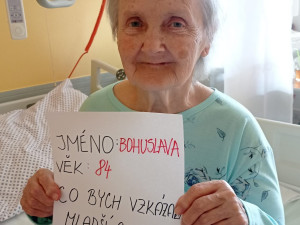 JMÉNO: BOHUSLAVA
VĚK: 84
CO BYCH VZKÁZALA
MLADŠÍ